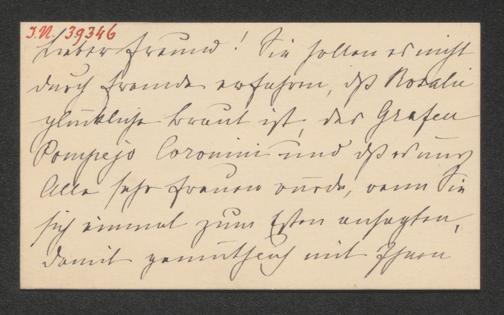 I.N. 39346
Lieber Freund! Sie sollen es nicht
durch Fremde erfahren, dß Rosalie
glückliche Braut ist, des Grafen
Pompejo Coronini und dß es uns
Alle sehr freuen würde, wenn Sie
sich einmal zum Essen ansagten,
damit gemüthlich mit Ihnen